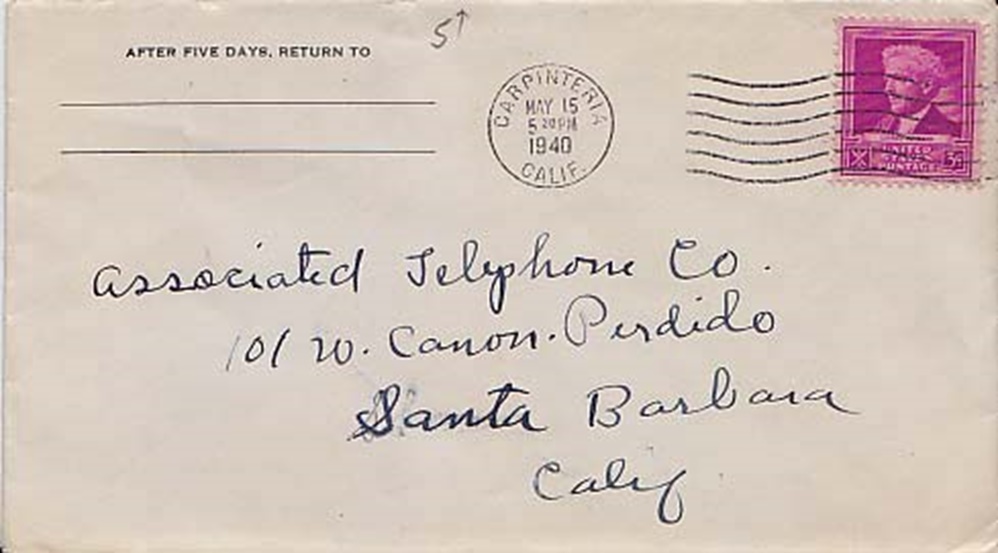 AFTER FIVE DAYS, RETURN TO
5
CARPINTERIA
MAY 15
5 PM
1940
CALIF.
UNITED
STATES
POSTAGE
3¢
Associated Telephone Co.
101 W. Canon. Perdido
Santa Barbara
Calif